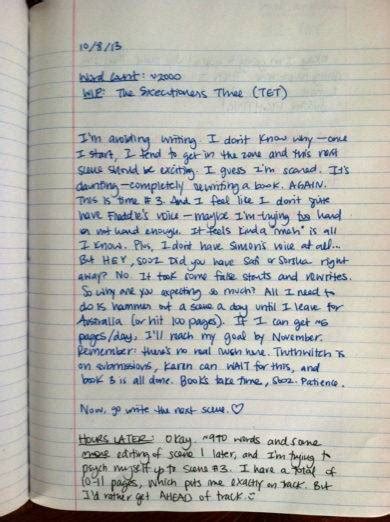 10/8/13
Word Count: ~2000
WIP: The Executioners Three (TET)
I'm avoiding writing. I don't know why — once
I start, I tend to get in the zone and this next
scene should be exciting. I guess I'm scared. It's
daunting — completely rewriting a book. AGAIN.
This is time #3. And I feel like I don't quite
have Freddie's voice — maybe I'm trying too hard
or not hard enough. It feels kinda "meh" is all
I know. Plus, I don't have Simon's voice at all...
But HEY, Sooz. Did you have Safi or Sorsha right
away? No. It took some false starts and rewrites.
So why are you expecting so much? All I need to
do is hammer out a scene a day until I leave for
Australia (or hit 100 pages). If I can get ~5
pages/day, I'll reach my goal by November.
Remember: there's no real rush here. Truthwitch is
on submissions, Karen can WAIT for this, and
book 3 is all done. Books take time, Sooz. Patience.
Now, go write the next scene. ♡
HOURS LATER: Okay. ~970 words and some
more editing of scene 1 later, and I'm trying to
psych myself up to scene #3. I have a total of
10-11 pages, which puts me exactly on track. But
I'd rather get AHEAD of track. :)